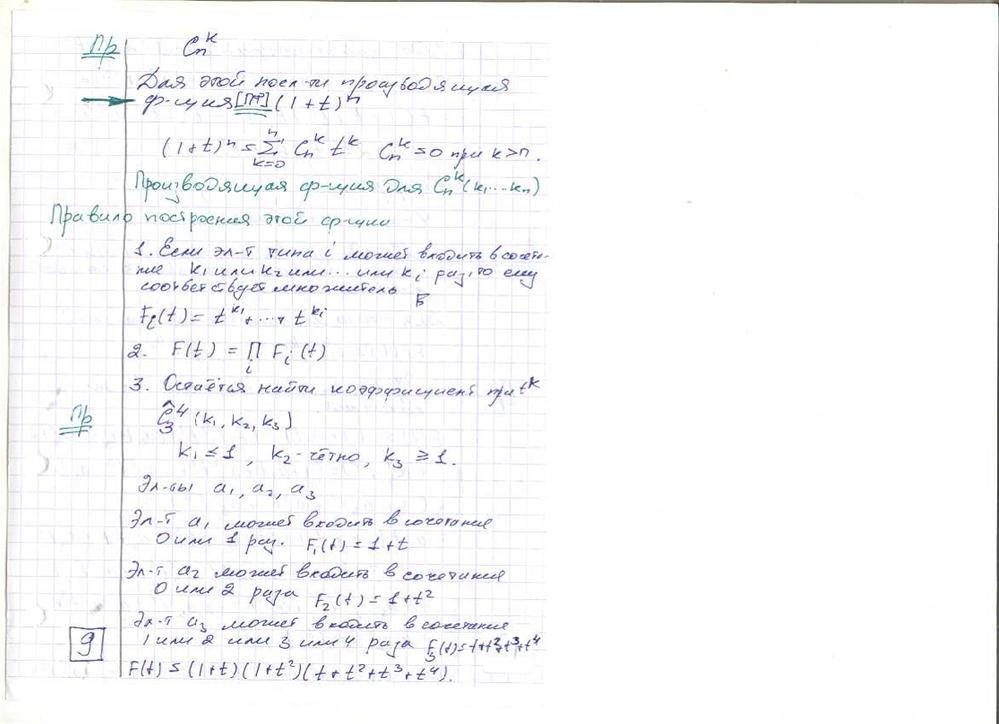 Пр C_n^k
Для этой посл-ти производящая
ф-ция [ПФ] (1+t)^n
(1+t)^n = Σ_{k=0}^{n} C_n^k t^k C_n^k = 0 при k>n.
Производящая ф-ция для C_n^k (k₁...kₙ)
Правило построения этой ф-ции
1. Если эл-т типа i может входить в сочета-
ние k₁ или k₂ или... или kᵢ раз, то ему
соответствует множитель
Fᵢ(t) = t^{k₁} + ... + t^{kᵢ}
2. F(t) = ∏_i Fᵢ(t)
3. Остаётся найти коэффициент при t^k
Пр Ĉ_3^4 (k₁, k₂, k₃)
k₁ ≤ 1, k₂ - чётно, k₃ ≥ 1.
Эл-ты a₁, a₂, a₃
Эл-т a₁ может входить в сочетание
0 или 1 раз. F₁(t) = 1+t
Эл-т a₂ может входить в сочетания
0 или 2 раза F₂(t) = 1+t²
Эл-т a₃ может входить в сочетание
1 или 2 или 3 или 4 раза F₃(t) = t+t²+t³+t⁴
9
F(t) = (1+t)(1+t²)(t+t²+t³+t⁴).